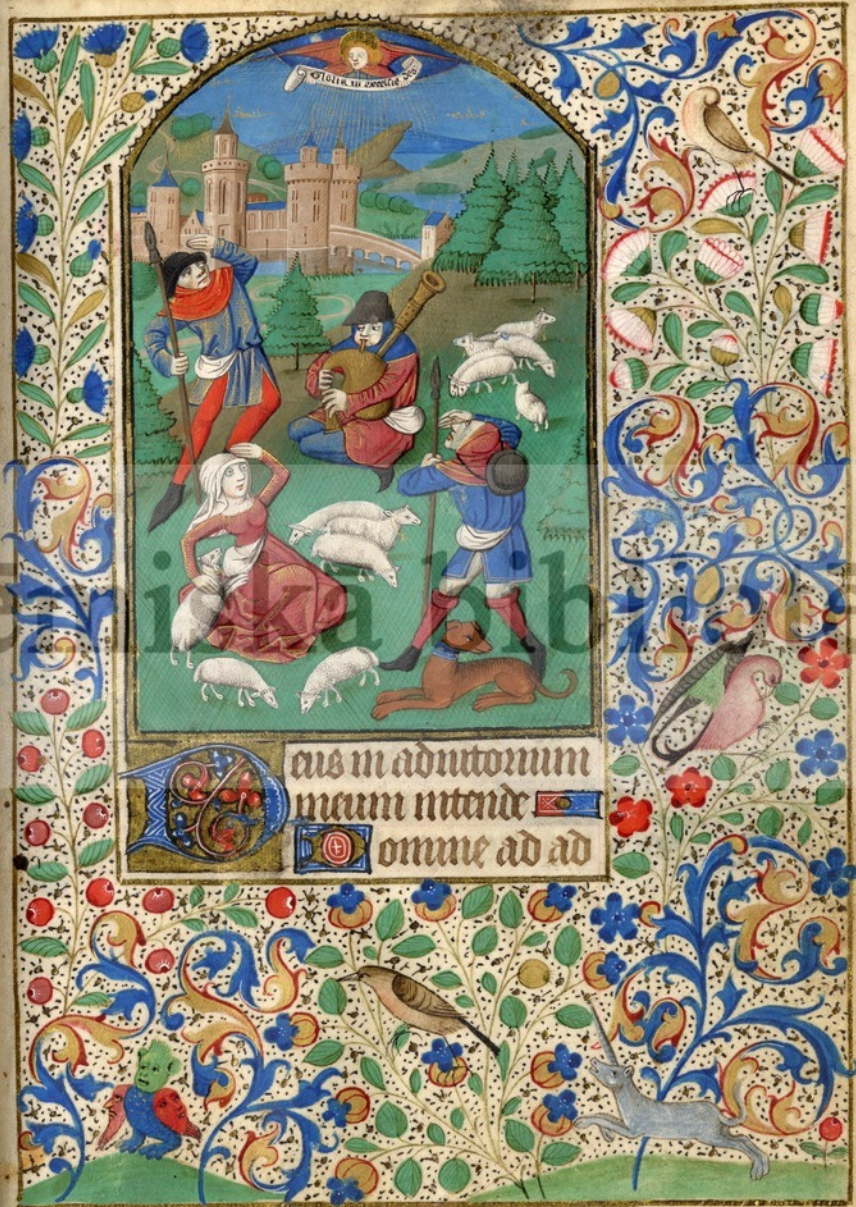 Gloria in
Deus in adiutorium
meum intende
Domine ad ad